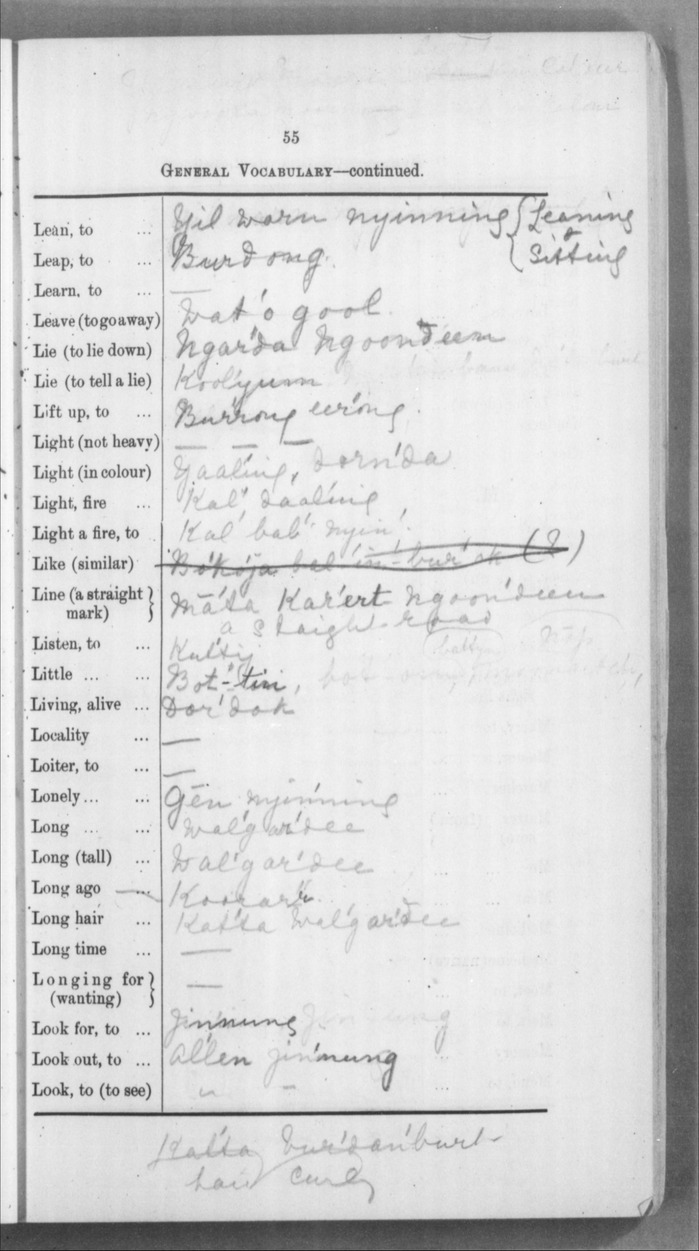 55
GENERAL VOCABULARY—continued.
Lean, to ... Yil warn nyinning { Leaning & Sitting
Leap, to ... Burdong.
Learn, to ... —
Leave (to go away) Wat'ogool
Lie (to lie down) Ngar'da Ngoondeen
Lie (to tell a lie) Kool'yum
Lift up, to ... Bur'rong
Light (not heavy) — — —
Light (in colour) Yaal'ing, dorn'da
Light, fire ... Kal' daaling,
Light a fire, to . Kal' bab' nyin'.
Like (similar) (?)
Line (a straight mark) } Mā'ta Kar'ert Ngoon'deen
a Staight road
Listen, to ...
Little ... ... Bot'-tin,
Living, alive ... Dor'dok
Locality ... —
Loiter, to ... —
Lonely... ... Gēn nyin'ning
Long ... ... Wal'gar'dee
Long (tall) ... Wal'gar'dee
Long ago ...
Long hair ... Kat'ta Wal'gar'dee
Long time ... —
Longing for (wanting) } —
Look for, to ... Jin'nung
Look out, to ... Allen jin'nung
Look, to (to see) " "
Kat'ta
hair curly